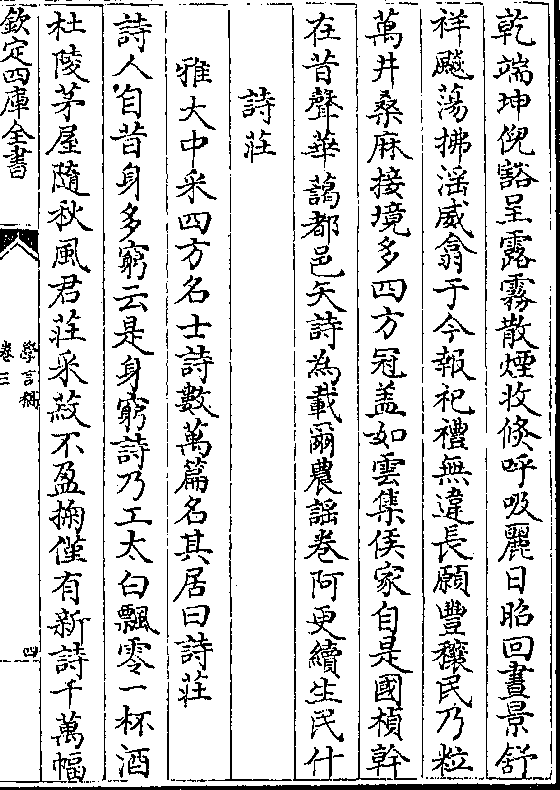 乾端坤倪豁呈露霧散煙收倐呼吸麗日昭回晝景舒
祥飈蕩拂滛威翕于今報祀禮無違長願豐穰民乃粒
萬井桑麻接境多四方冠盖如雲集侯家自是國楨幹
在昔聲華藹都邑矢詩為載爾農謡卷阿更續生民什
詩莊
雅大中采四方名士詩數萬篇名其居曰詩莊
詩人自昔身多窮云是身窮詩乃工太白飄零一杯酒
杜陵茅屋隨秋風君莊采菽不盈掬僅有新詩千萬幅
欽定四庫全書
學言稿
卷三
四